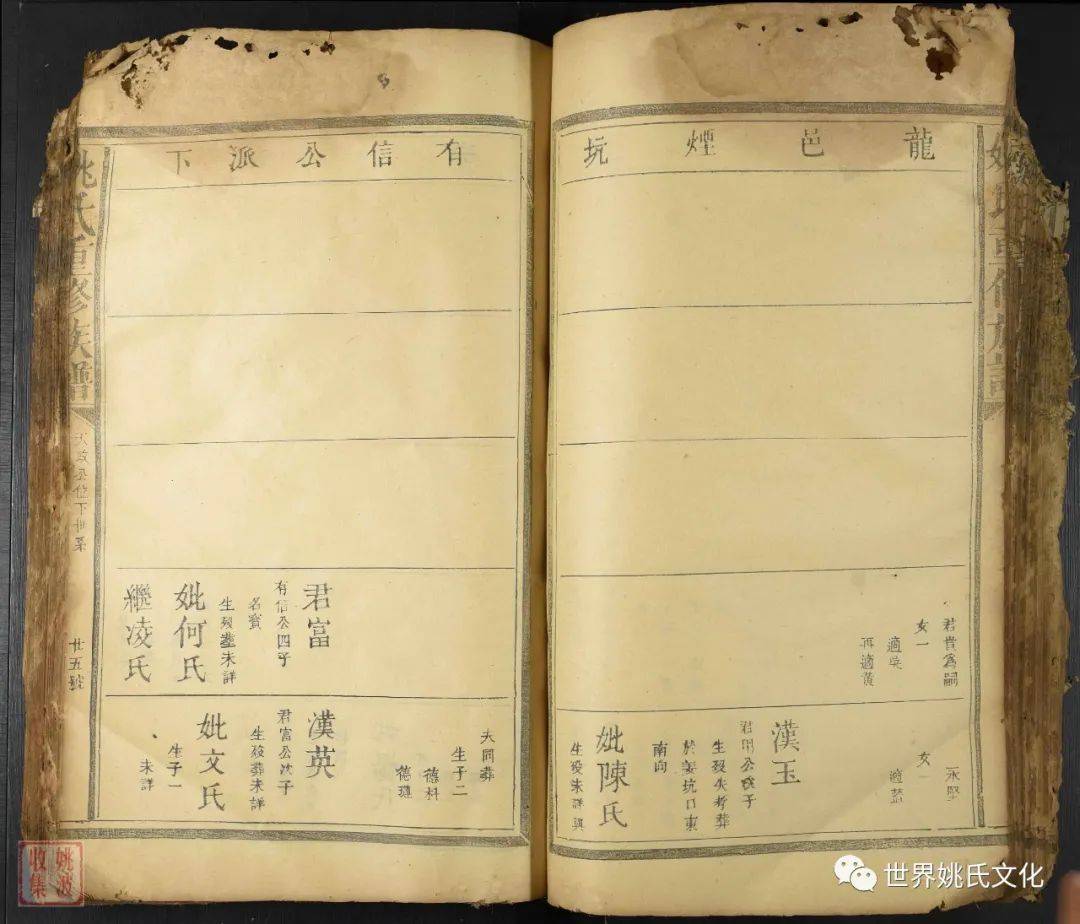 龍邑煙坑
君貴為嗣
女一
適吳
再適黃
永堅
女一
適藍
漢玉
生歿失考葬
於姜坑口東
南向
妣陳氏
有信公派下
夫同葬
生子二
德科
德璉
君富
有信公四子
名賓
生歿塟未詳
妣何氏
繼凌氏
漢英
君富公次子
生歿葬未詳
妣文氏
生子一
未詳
姚氏重修族譜
廿五號
姚波
收集
世界姚氏文化